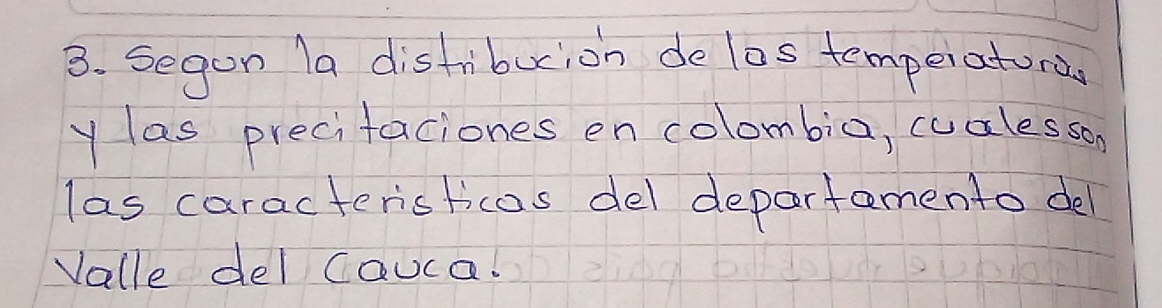 3. Segun la distribución de las temperaturas
y las precitaciones en colombia, cuales son
las caracteristicas del departamento del
Valle del Cauca.